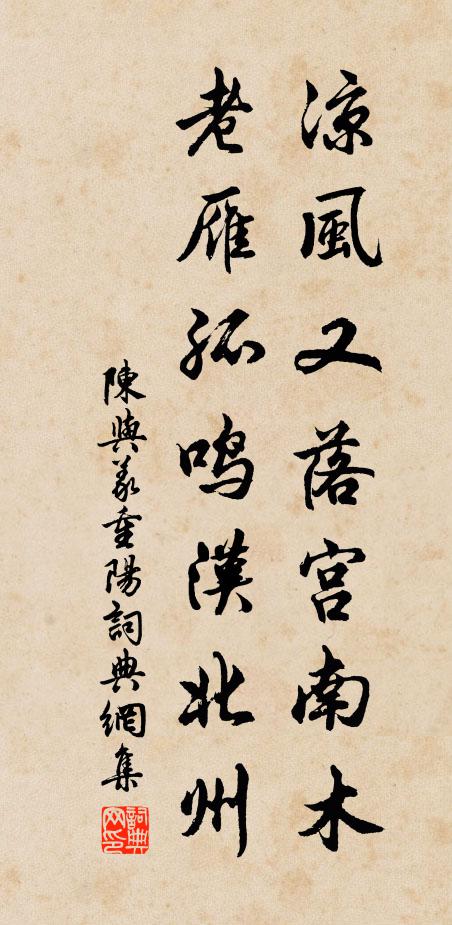 涼風又落宮南木
老雁孤鳴漢北州
陳與義重陽詞典網集
詞典網印